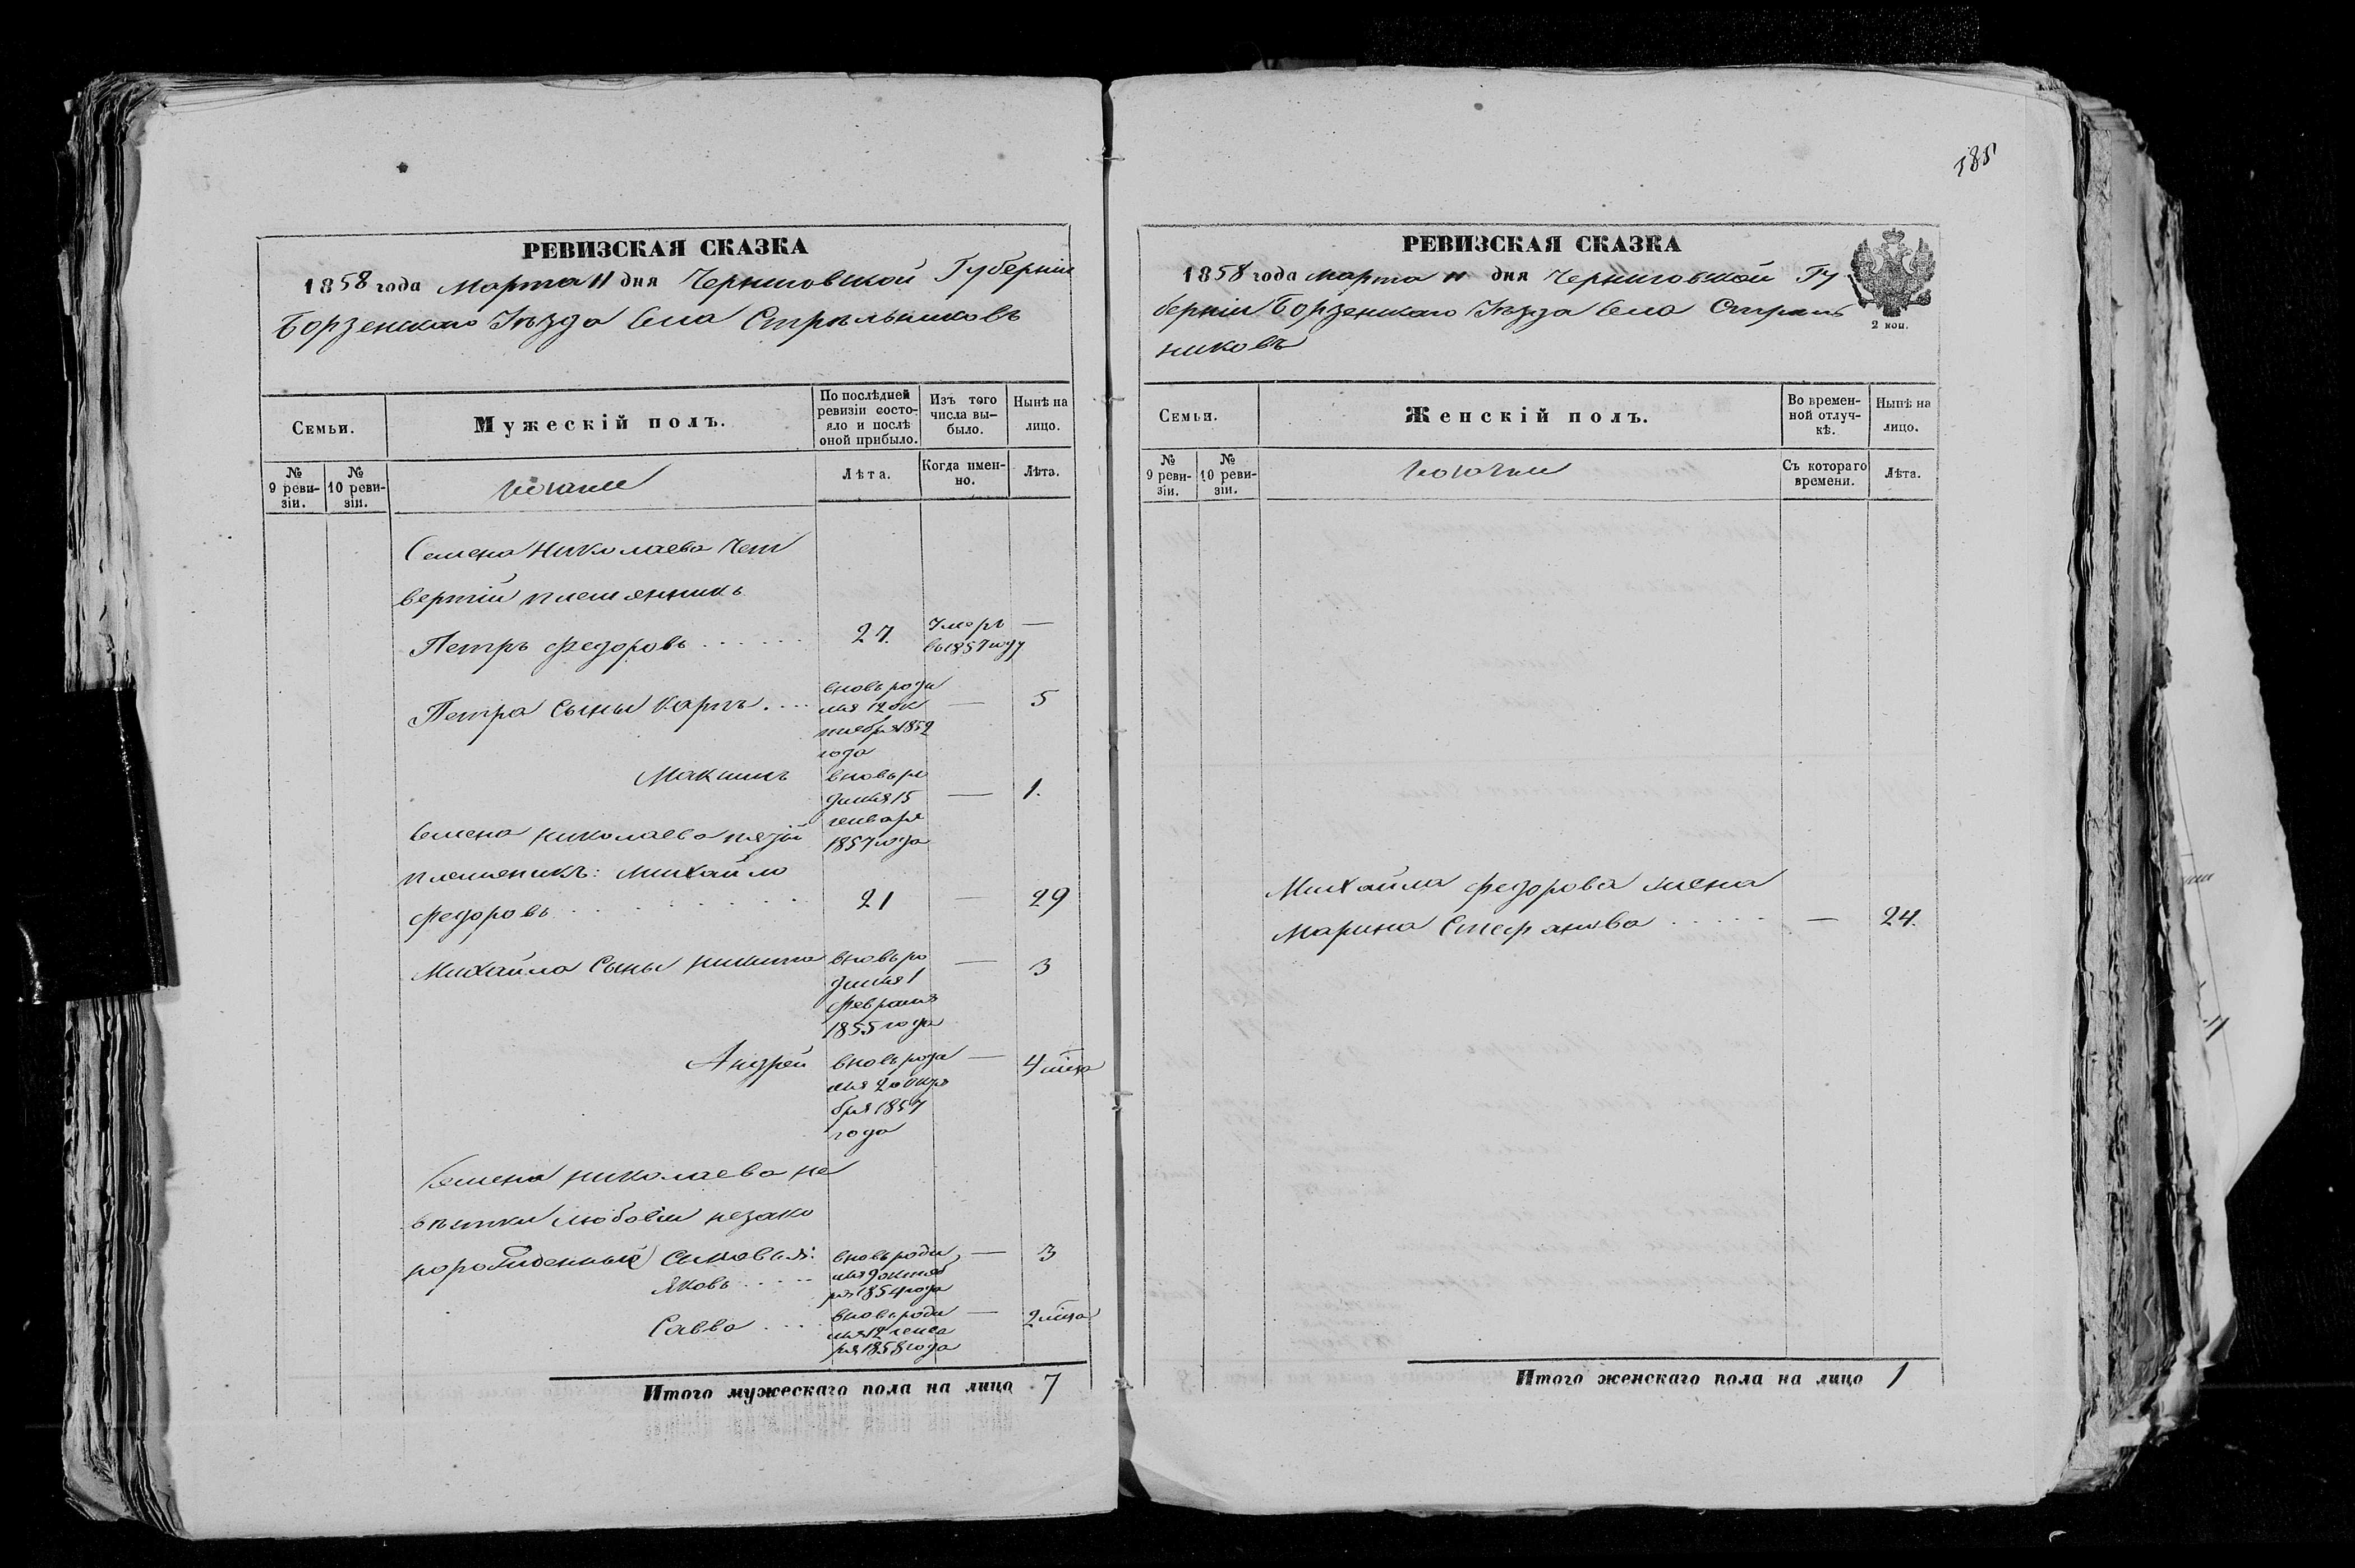 185
РЕВИЗСКАЯ СКАЗКА
1858 года марта 11 дня Черниговской Губерніи
Борзенскаго Уѣзда Села Стрѣльниковъ
Семьи.
Мужескій полъ.
По послѣдней ревизіи состояло и послѣ оной прибыло.
Изъ того числа выбыло.
Нынѣ на лицо.
№ 9 ревизіи.
№ 10 ревизіи.
Лѣта.
Когда именно.
Лѣта.
Семена Николаева чет
вертій племянникъ
Петръ Федоровъ . . . . . . 27. Умеръ въ 1857 году —
Петра Сыны Карпъ . . . вновь роди
лся 12 ок — 5
тября 1852
года
Максимъ вновь ро
дился 15 — 1.
генваря
Семена Николаева пятій 1857 года
племеникъ: Михайло
Федоровъ . . . . . . . . 21 — 29
Михайла Сыны Никита вновь ро — 3
дился 1
февраля
1855 года
Андрей вновь роди — 4 м҃ца
лся 20 октя
бря 1857
года
Семена Николаева не
вѣстки Любови незако
норожденный сыновья: вновь роди — 3
Яковъ . . . . . лся 9 октяб
ря 1854 года
Савва . . . . вновь роди — 2 м҃ца
лся 12 генва
ря 1858 года
Итого мужескаго пола на лицо 7
РЕВИЗСКАЯ СКАЗКА
1858 года марта 11 дня Черниговской Гу
берніи Борзенскаго Уѣзда Села Стрѣль
никовъ
2 коп.
Семьи.
Женскій полъ.
Во временной отлучкѣ.
Нынѣ на лицо.
№ 9 ревизіи.
№ 10 ревизіи.
Съ котораго времени.
Лѣта.
Михайла Федорова жена
Марина Стефанова . . . . . — 24.
Итого женскаго пола на лицо 1